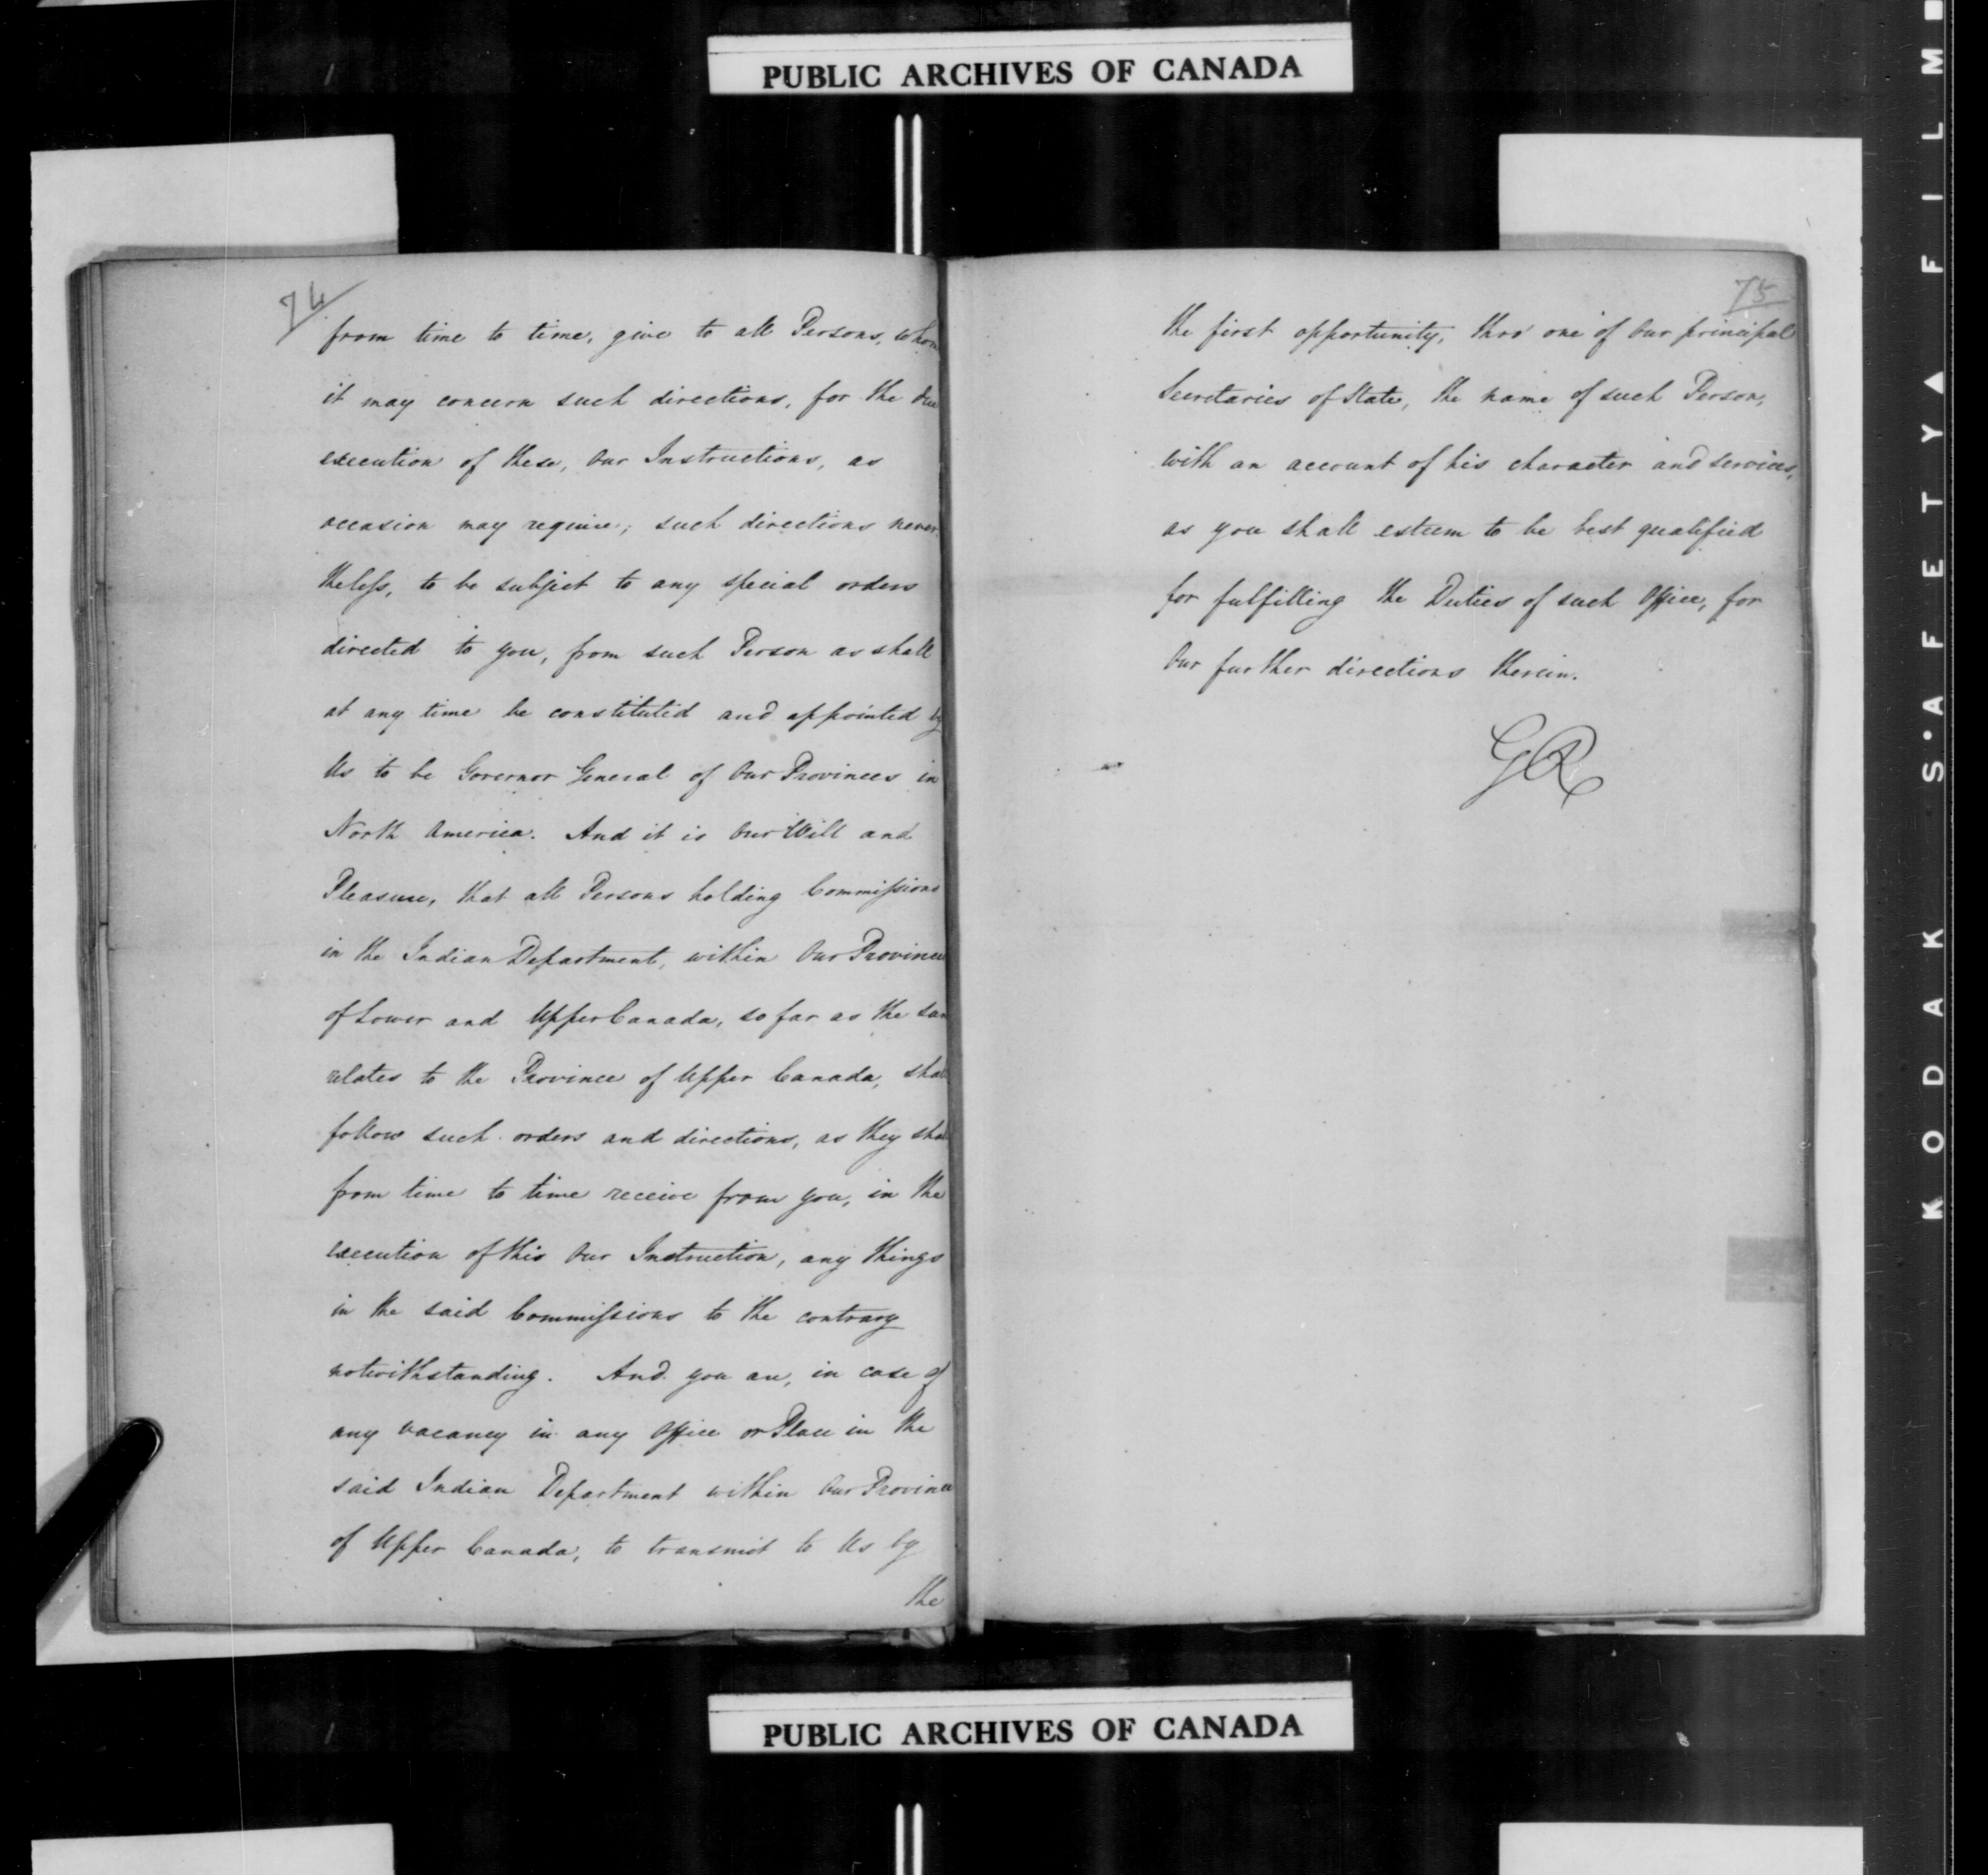 PUBLIC ARCHIVES OF CANADA
74
from time to time, give to all Persons, whom
it may concern such directions, for the due
execution of these, Our Instructions, as
occasion may require; such directions never-
theless, to be subject to any special orders
directed to you, from such Person as shall
at any time be constituted and appointed by
Us to be Governor General of Our Provinces in
North America. And it is Our Will and
Pleasure, that all Persons holding Commissions
in the Indian Department, within Our Provinces
of Lower and Upper Canada, so far as the same
relates to the Province of Upper Canada, shall
follow such orders and directions, as they shall
from time to time receive from you, in the
execution of this Our Instruction, any things
in the said Commissions to the contrary
notwithstanding. And you are, in case of
any vacancy in any Office or Place in the
said Indian Department within Our Province
of Upper Canada, to transmit to Us by
the
75
the first opportunity, thro' one of Our principal
Secretaries of State, the name of such Person,
with an account of his character and services,
as you shall esteem to be best qualified
for fulfilling the Duties of such Office, for
Our further directions therein.
GR
PUBLIC ARCHIVES OF CANADA
KODAK S•AFETY▲FILM■